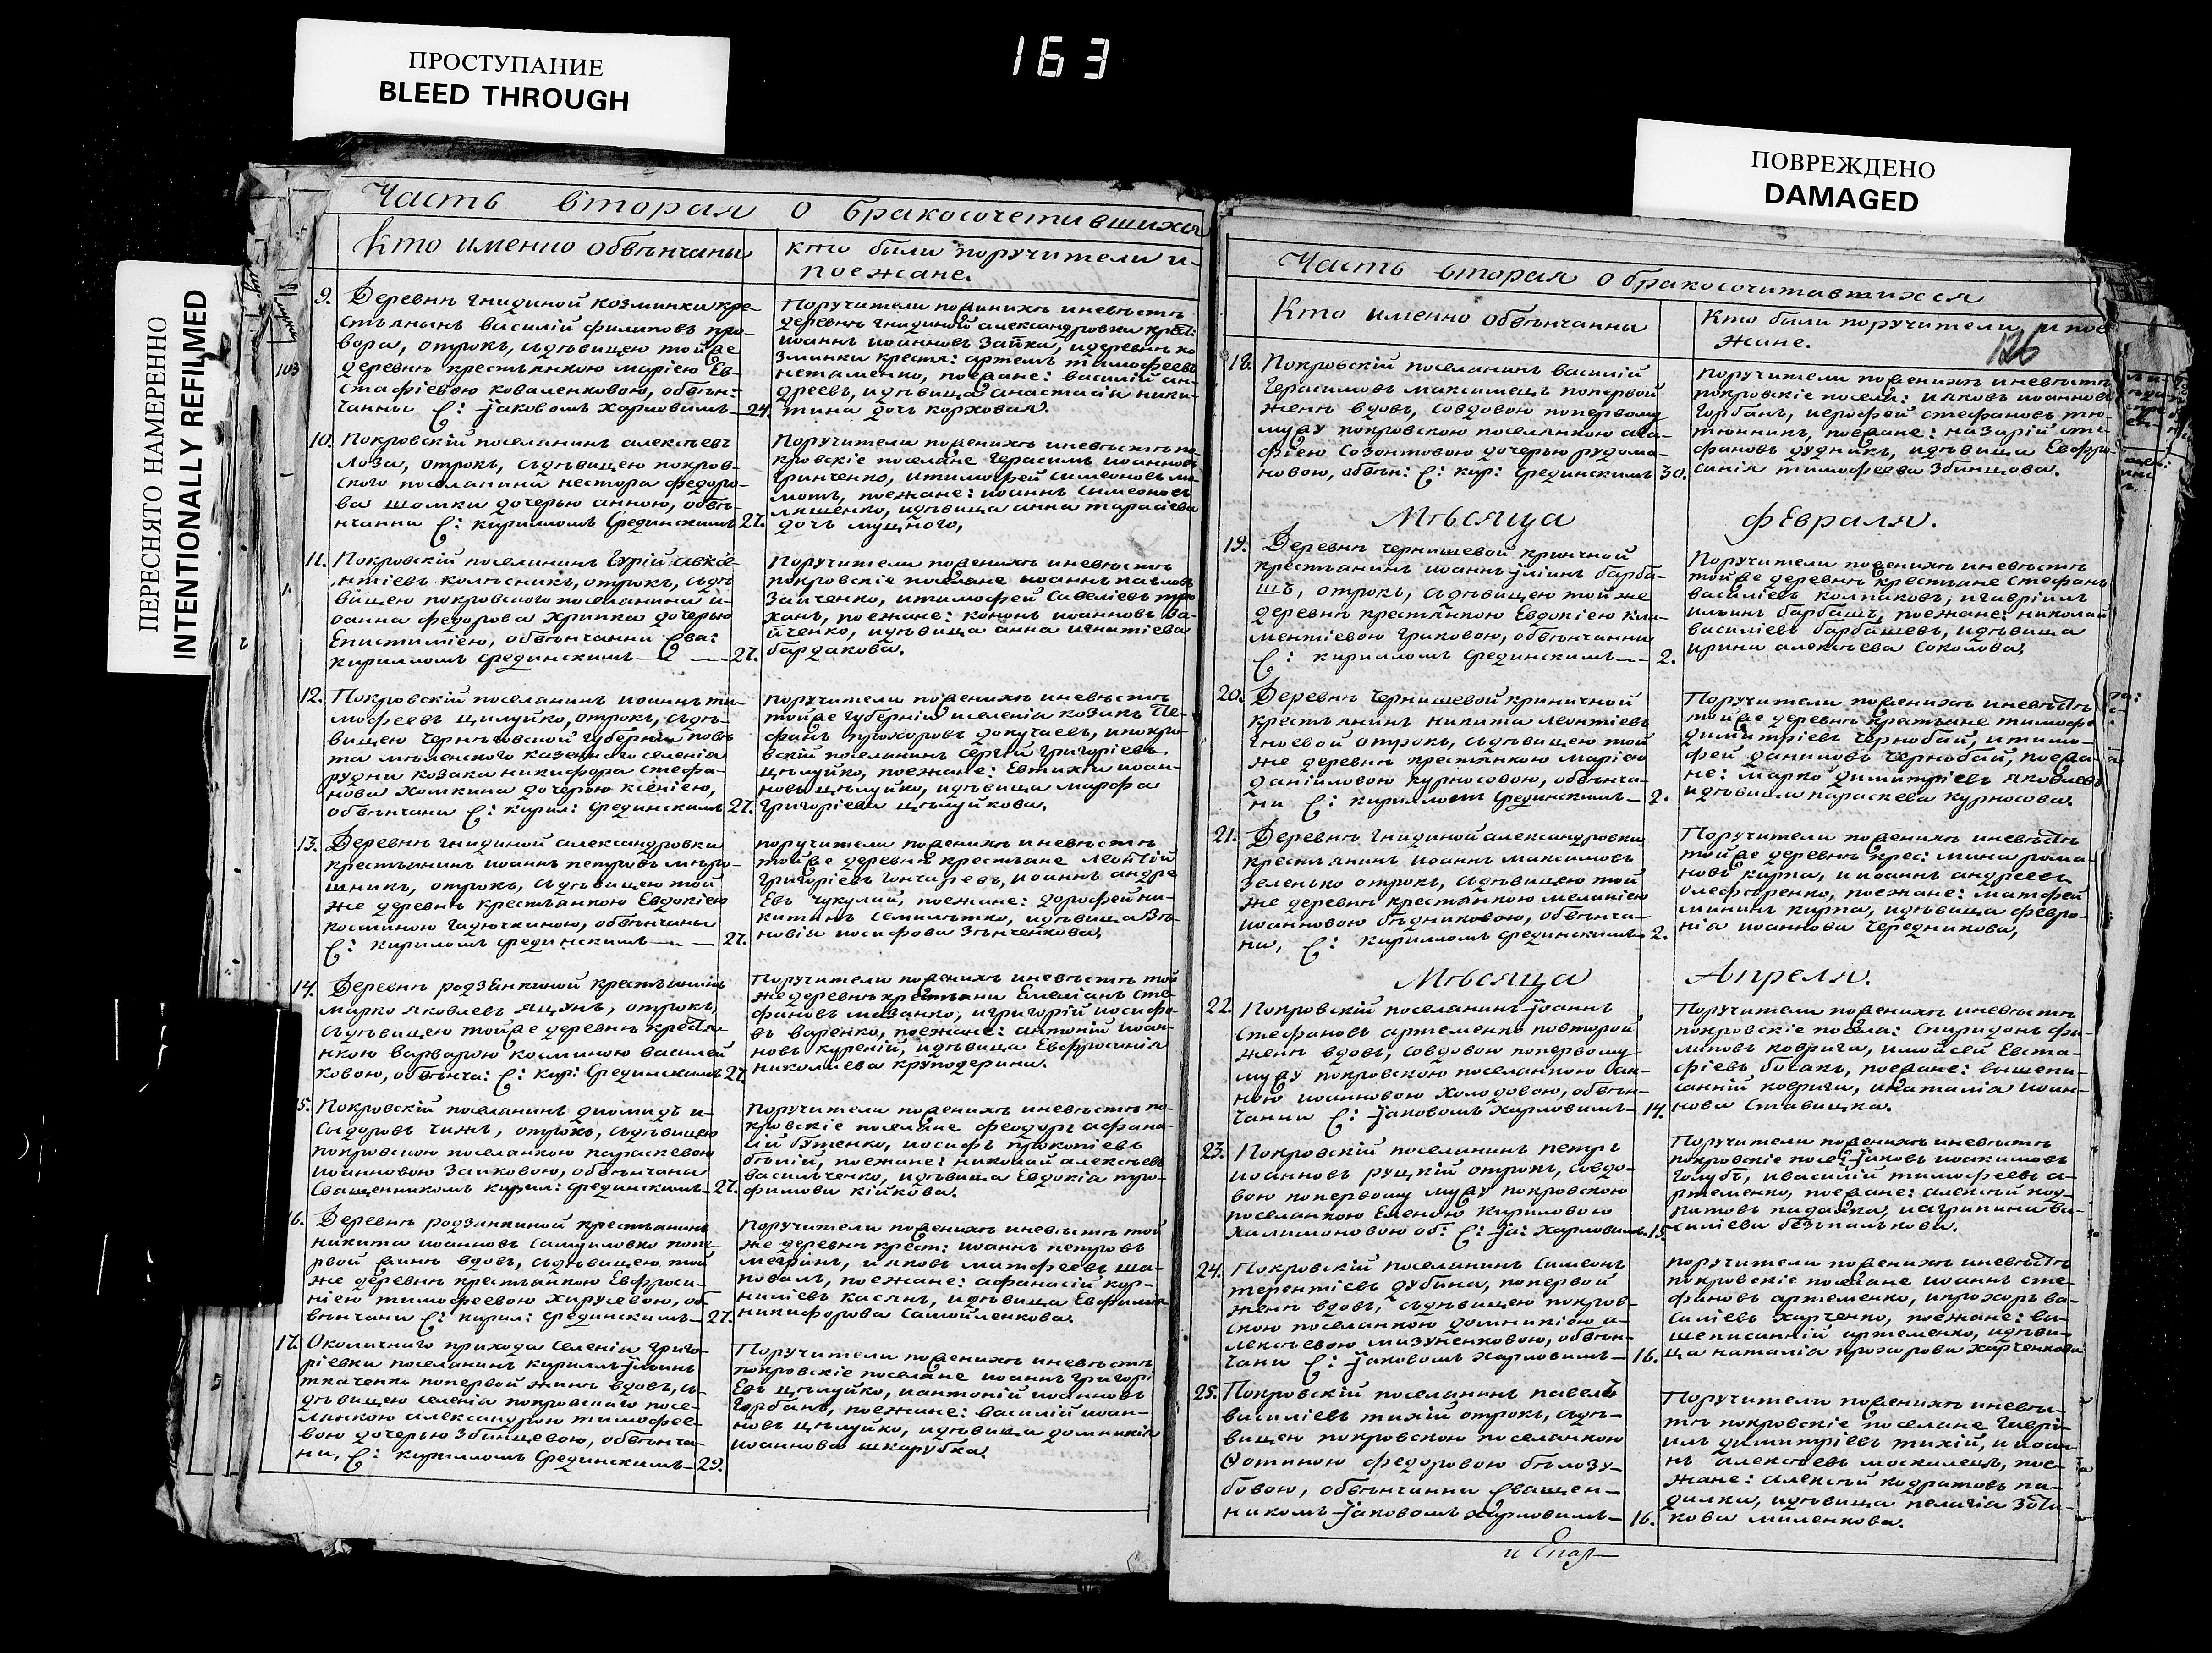 163
ПРОСТУПАНИЕ
BLEED THROUGH
ПОВРЕЖДЕНО
DAMAGED
ПЕРЕСНЯТО НАМЕРЕННО
INTENTIONALLY REFILMED
Часть вторая о бракосочетавшихся
Кто именно обвѣнчаны
кто были поручители и
поежане.
103
9. Деревнѣ гнидиной козминки кре-
стьянинъ василій филиповъ
отрокъ, съдѣвицею тойже
деревнѣ крестьянкою маріею Ев-
стафіевою коваленковою, обвѣн-
чанны С: Іаковомъ Харловимъ 24.
Поручители поженихѣ иневѣстѣ
деревнѣ гнидиной александровки
иоаннъ иоанновъ Зайка, идеревнѣ ко
зминки крестя: артемъ тимофеевъ
нстаменко, поежане: василій ан-
дреевъ, идѣвица анастасія ники-
тина дочь коржовая.
10. Покровскій поселанинъ алексѣевъ
лоза, отрокъ, съдѣвицею покров-
ского поселанина нестора федоро-
ва шомки дочерью анною, обвѣ-
нчанни С: кирилломъ Срединскимъ 27.
Поручители поженихѣ иневѣстѣ по-
кровскіе поселане Герасимъ иоанновъ
Гринченко, итимофей Симеоновъ ма-
мотъ, поежане: иоаннъ Симеоновъ
ляшенко, идѣвица анна тарасіева
дочь мущного,
11. Покровскій поселанинъ Гурій авксе-
нтіевъ колѣсникъ, отрокъ, съдѣ
вицею покровского поселанина и-
оанна федорова Хринка дочерью
Епистиміею, обвѣнчанни Сва:
кирилломъ Срединскимъ 27.
Поручители поженихѣ иневѣстѣ
покровскіе поселане иоаннъ павловъ
Зайченко, итимофей Савеліевъ
ханъ, поежане: кононъ иоанновъ За-
йченко, идѣвица анна игнатіева
бардакова.
12. Покровскій поселанинъ иоаннъ ти-
мофеевъ цилуйко, отрокъ, съдѣ-
вицею Чернѣговской губерніи повѣ
та мгленского казенного селенія
рудни козака никифора стефа-
нова хомкина дочерью ксеніею,
обвѣнчани С: кирил: Срединскимъ 27.
поручители поженихѣ иневѣстѣ
тойже губерніи иселенія козакъ Сте-
фанъ прохоровъ докучаевъ, ипокро-
вскій поселанинъ Сергій григоріевъ
цѣлуйко, поежане: Евтихій иоан-
новъ цѣлуйко, идѣвица марфа
григоріева цѣлуйкова.
13. Деревнѣ гнидиной александровки
крестьянинъ иоаннъ петровъ мѣро-
шникъ, отрокъ, съдѣвицею той
же деревнѣ крестьянкою Евдокіею
косминою гадючкиною, обвѣнчаны
С: кирилломъ Срединскимъ 27.
поручители поженихѣ иневѣстѣ
тойже деревнѣ крестьяне Леонтій
григоріевъ гончаревъ, иоаннъ андре
евъ чукулай, поежане: дорофей ни-
китинъ семилѣтко, идѣвица Зѣ-
новія иосифова Зѣнченкова,
14. Деревнѣ родзянкиной крестьянинъ
марко яковлевъ яцунъ, отрокъ,
съдѣвицею тойже деревнѣ крестья-
нкою варварою косминою василей
ковою, обвѣнча: С: кир: Срединскимъ 27
Поручители поженихѣ иневѣстѣ той
же деревнѣ крестьяни Емеліанъ сте-
фановъ мазанко, игригорій иосифо-
въ варенко, поежане: антоній иоан-
новъ куреній, идѣвица Евфросинія
николаева круподерина.
15. Покровскій поселанинъ диомидъ и-
сыдоровъ чижъ, отрокъ, съдѣвицею
покровскою поселанкою параскевою
иоанновою Заиковою, обвѣнчани
Священникомъ кирил: Срединскимъ 27.
Поручители поженихѣ иневѣстѣ по-
кровскіе поселане феодоръ афана-
сій бутенко, иосифъ прокопіевъ
бѣлій, поежане: николай алексѣевъ
васильченко, идѣвица Евдокія тро-
фимова кійкова.
16. Деревнѣ родзянкиной крестьянинъ
никита иоанновъ Самуиловко попе-
рвой женѣ вдовъ, съдѣвицею той
же деревнѣ крестьянкою Евфроси-
ніею тимофеевою хирусевою, об-
вѣнчани С: кирил: Срединскимъ 27.
поручители поженихѣ иневѣстѣ той
же деревнѣ крест: иоаннъ петровъ
мегринъ, ияковъ матфеевъ ша-
повалъ, поежане: афанасій кор-
ниліевъ касянъ, идѣвица Евфимія
никифорова Самойленкова.
17. Околичного прихода Селенія григо-
ріевки поселанинъ кириллъ Ільинъ
ткаченко попервой жинѣ вдовъ, съ
дѣвицею селенія покровского посе-
лянкою александрою тимофее-
вою дочерью Збинцевою, обвѣнча-
ни, С: кирилломъ Срединскимъ 29.
Поручители поженихѣ иневѣстѣ
покровскіе поселане иоаннъ григорі
евъ цѣлуйко, иантоній иоанновъ
горбань, поежане: василій иоан-
новъ цѣлуйко, идѣвица домникія
иоаннова шкарубка.
Часть вторая о бракосочитавшихся
Кто именно обвѣнчанны
Кто были поручители и пое
жане.
126
18. Покровскій поселанинъ василій
Герасимовъ максимецъ попервой
женѣ вдовъ, совдовою попервому
мужу покровскою поселянкою ага-
фіею Созонтовою дочерью рудома-
новою, обвѣн: С: кир: Срединскимъ 30.
поручители поженихѣ иневѣстѣ
покровскіе посели: ияковъ иоанновъ
горбань, иерофей стефановъ тю-
тюнникъ, поежане: назарій сте-
фановъ дудникъ, идѣвица Евфро-
синія тимофеева Збинцова.
Мѣсяца Февраля.
19. Деревнѣ чернишевой криничной
крестьянинъ иоаннъ Іліинъ барба-
шъ, отрокъ, съдѣвицею той же
деревнѣ крестьянкою Евдокіею кли-
ментіевою граковою, обвѣнчанни
С: кирилломъ Срединскимъ 2.
Поручители поженихѣ иневѣстѣ
тойже деревнѣ крестьяне стефанъ
василіевъ колпаковъ, игавріилъ
ильинъ барбашъ, поежане: николай
василіевъ барбашевъ, идѣвица
ирина алексѣева Соколова,
20. Деревнѣ Чернишевой криничной
крестьянинъ никита леонтіевъ
гноевой отрокъ, съдѣвицею той
же деревнѣ крестьянкою маріею
даніиловою курносовою, обвѣнча-
ни С: кирилломъ Срединскимъ 2.
Поручители поженихѣ иневѣстѣ
тойже деревнѣ крестьяне тимофе
димитріевъ Чернобай, итимо-
фей даниловъ Чернобай, поежа-
не: марко димитріевъ яковлевъ
идѣвица параскева курносова.
21. Деревнѣ гнидиной александровки
крестьянинъ иоаннъ максимовъ
Зеленько отрокъ, съдѣвицею той
же деревнѣ крестьянкою меланіею
иоанновою бѣдниковою, обвѣнча-
ни, С: кирилломъ Срединскимъ 2.
Поручители поженихѣ иневѣстѣ
тойже деревнѣ крес: мина рома-
новъ кирпа, и иоаннъ андреевъ
олефѣренко, поежане: матфей
мининъ кирпа, идѣвица февро-
нія иоаннова Чередникова,
Мѣсяца Апреля.
22. Покровскій поселанинъ Іоаннъ
Стефановъ артеменко повторой
женѣ вдовъ, совдовою попервому
мужу покровскою поселанкою ан-
ною иоанновою холодовою, обвѣн-
чанни С: Іаковомъ Харловимъ 14.
Поручители поженихѣ иневѣстѣ
покровскіе посела: Спиридонъ фи-
липовъ коврига, имойсей Евста-
фіевъ босакъ, поежане: вышепи-
санній коврига, инаталія иоан-
нова Ставицка.
23. Покровскій поселанинъ петръ
иоанновъ руцкій отрокъ, совдо-
вою попервому мужу покровскою
поселанкою Еленою кириловою
халимоновою об: С: Іа: Харловимъ 15.
Поручители поженихѣ иневѣстѣ
покровскіе посе: Іаковъ иоакимовъ
голубъ, ивасилій тимофеевъ а-
ртеменко, поежане: алексѣй код-
ратовъ падалка, иагрипина ва-
силіева безъпалькова.
24. Покровскій поселанинъ Симеонъ
терентіевъ дубина, попервой
женѣ вдовъ, съдѣвицею покров-
скою поселанкою домникіею а-
лексѣевою мизуненковою, обвѣн-
чани С: Іаковомъ Харловимъ 16.
поручители поженихѣ иневѣстѣ
покровскіе поселане иоаннъ сте-
фановъ артеменко, ипрохоръ ва-
силіевъ харченко, поежане: ви-
шеписанній артеменко, идѣви-
ца наталія прохорова харченкова
25. Покровскій поселанинъ павелъ
василіевъ тихій отрокъ, съдѣ-
вицею покровскою поселанкою
Фотиною федоровою бѣлозу-
бовою, обвѣнчанни Священ-
никомъ Іаковомъ Харловимъ 16.
Поручители поженихѣ иневѣс-
тѣ покровскіе поселане, гаврі-
илъ димитріевъ тихій, и иоан-
нъ алексѣевъ москалецъ, пое-
жане: алексѣй кодратовъ па-
далка, идѣвица пелагія
кова миленкова.